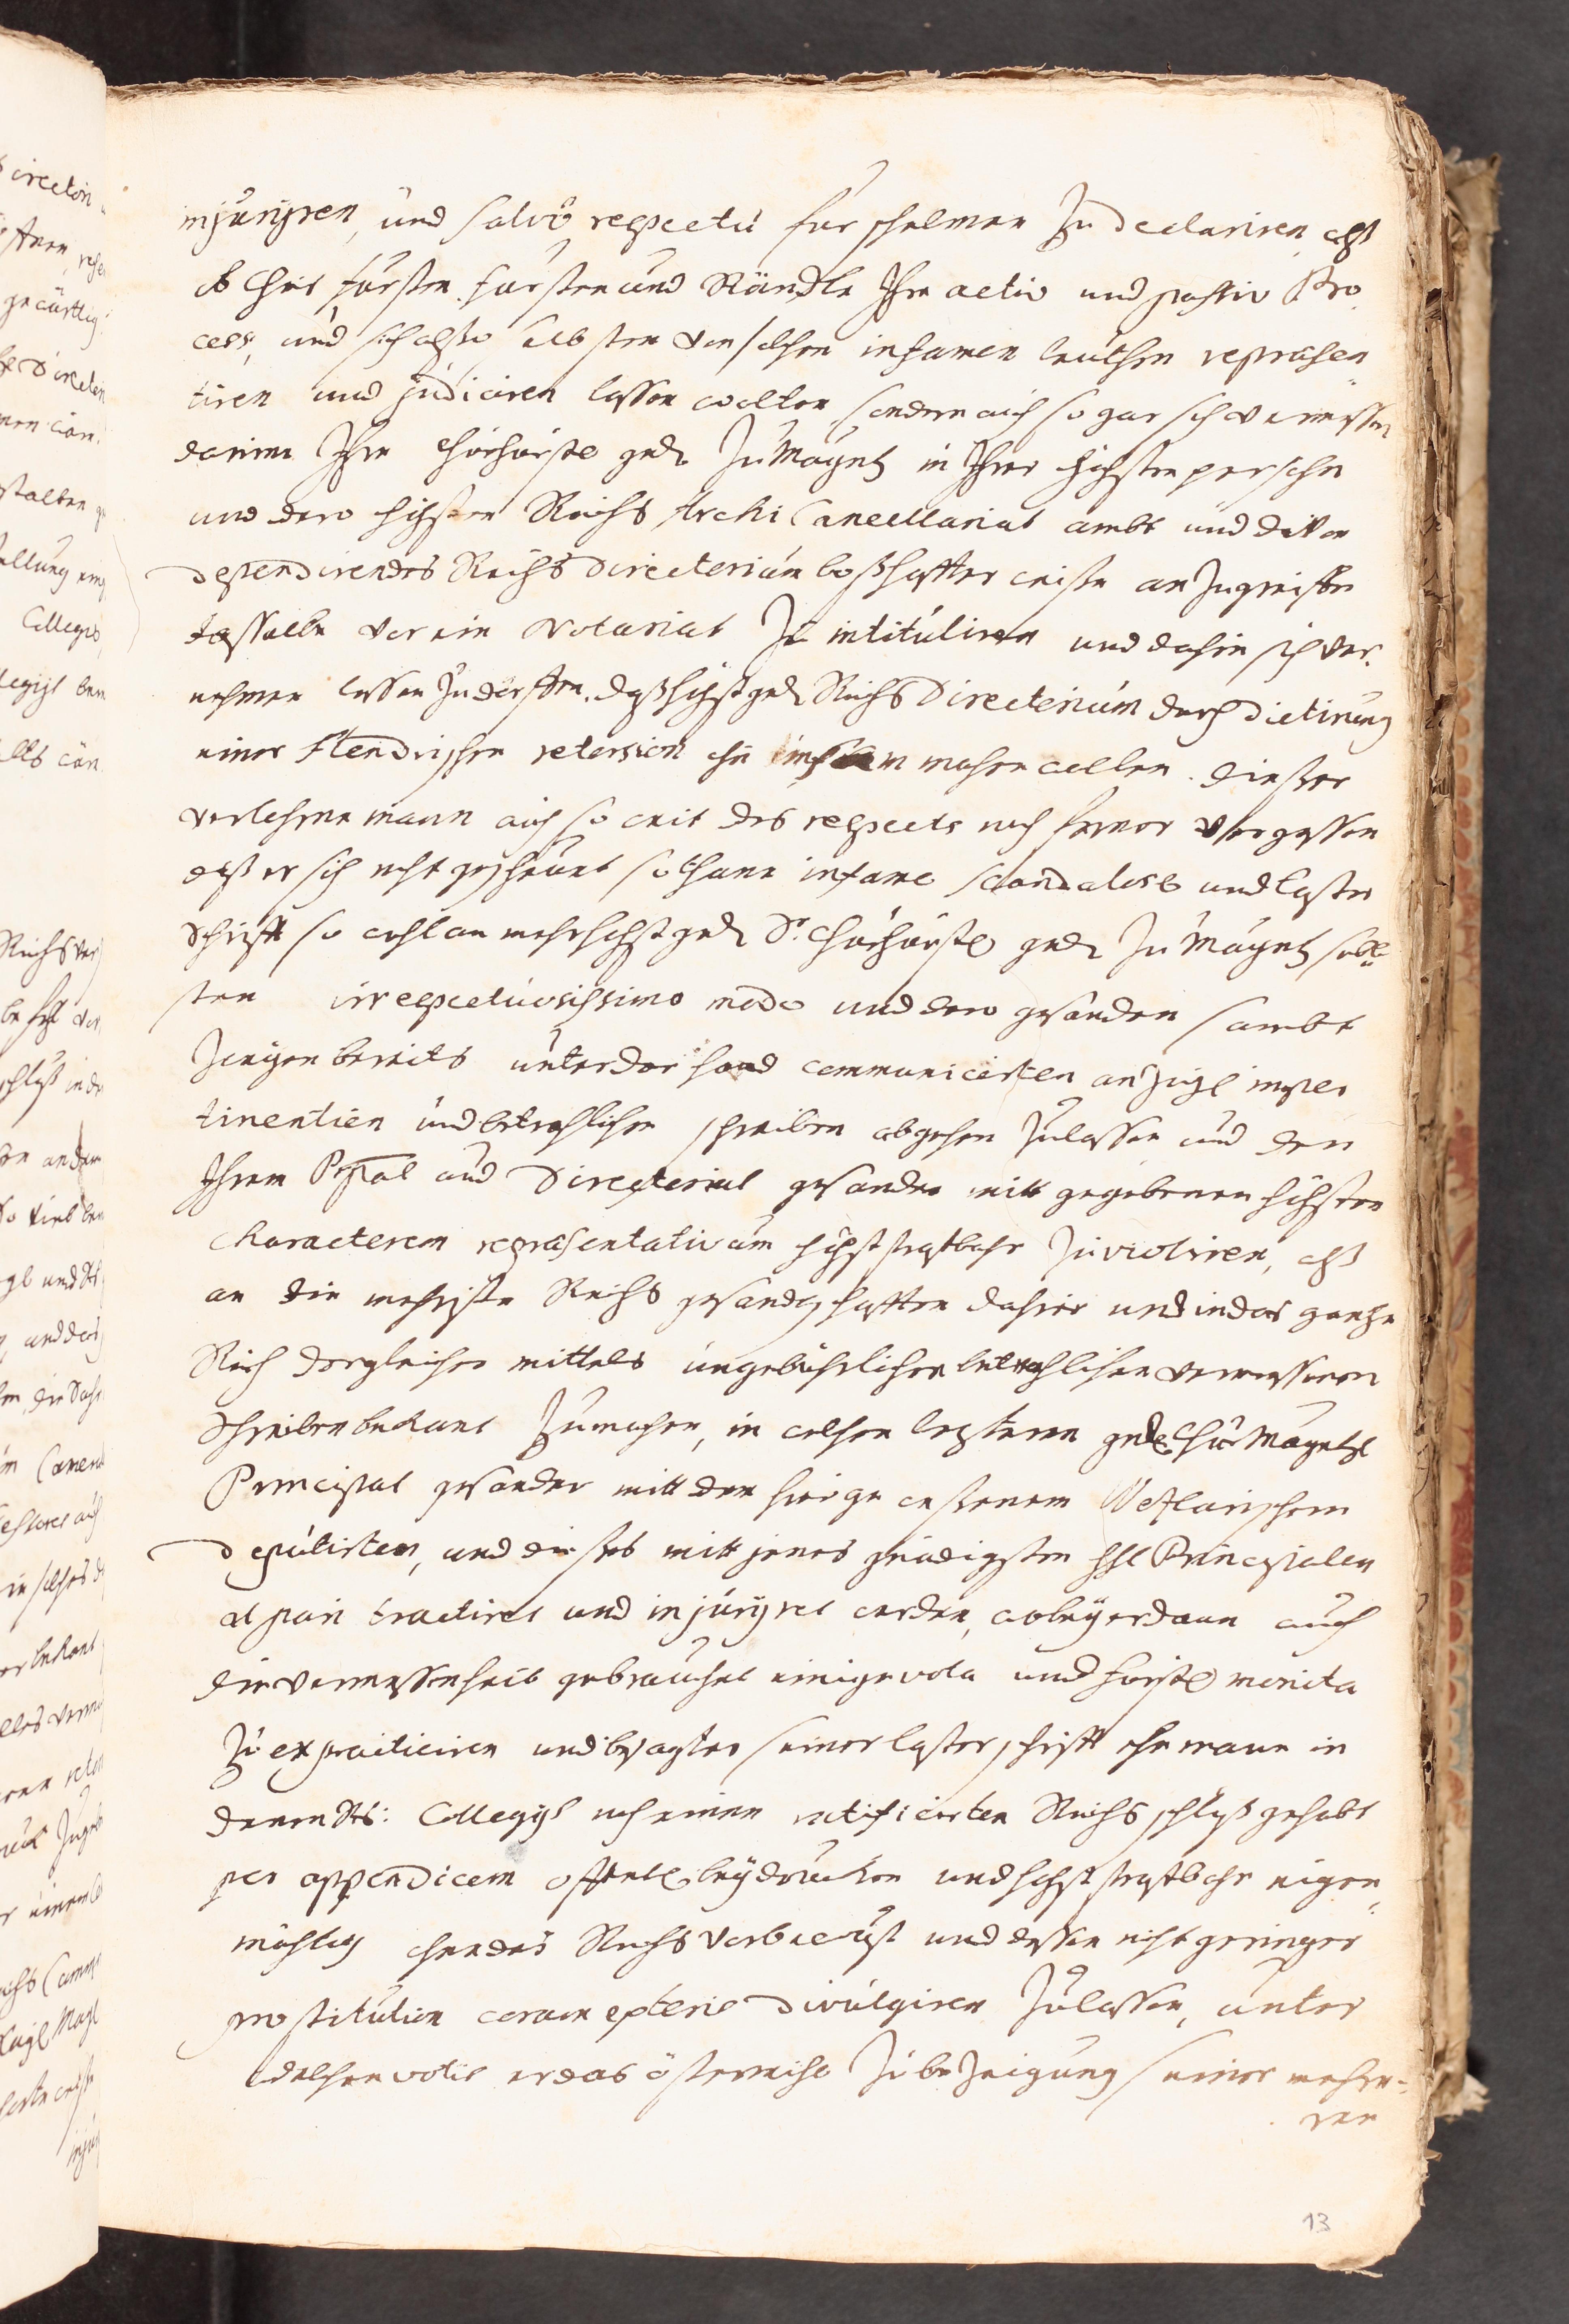 injurijren, und salvo respectu fur schelmen zu declariren, alß
ob Chur fürsten fürsten und Ständte Ihre activ und passiv Pro
cess, und sich also selbsten von solchen infamen leuthen repræsen
tiren und judiciren lassen wolten sondern auch so gar sich vermessen
darinn Ihre Churfürstl gndn zu Maÿntz in Ihrer höchsten persohn
und dero höchsten Reichs Archi Cancellariat ambt und davon
dependirendes Reichs Directorium boßhaffter weiße anzugreiffen
dasselbe vor ein Notariat zu intituliren und dahin sich ver
nehmen lassen zu dörffen, daß höchstgndn Reichs Directorium durch dictirung
einer stendrischen retorsion ihn machen wollen. dießer
verlehrnemann auch so weit des respects noch ferner vergessen
daß er sich nicht gescheuet sothane infame scandalose und laster
schrifft so wohl an mehrhöchstgndn Sr. Churfürstl gndn zu Maÿntz selb
sten irrespectuosissimo modo und dero gesanden sambt
zeugen bereits unter der hand communicirten anzügl imper
tinentien und betrohlichen schreiben abgehen zulassen und den
Ihrem Principal und Directorial gesanden mitt gegebenen höchsten
characterem repræsentativum höchst strafbahr zu violiren, alß
an die mehriste Reichs gesandschafften dahier und in das gantze
Reich dergleichen mittels ungebührlichen betrohlichen vermessenen
Schreiben bekant zumachen, in welchen letzteren Chur Maÿntzl
Principal gesander mitt dem hier geweßenem Wetzlarischem
deputirten, und dießes mitt jenes gnädigsten HH Principalen
al pari tractiret und injurijret werden, wobeÿ er dann auch
die vermessenheit gebrauchet einige vota und fürstl monita
zu expracticiren und besagter seiner laster schrifft ehe mann in
denen Rs: Collegijs noch einen ratificirten Reichs schluß gehabt
per appendicem offentl beÿdrucken und höchst strafbahr eigen
mächtig ohne des Reichs vorbewust und dessen nicht geringer
prostitution coram exteris divulgiren zulassen, unter
welchen votis er das österreichl zu bezeigung seiner mehre-
ren
13